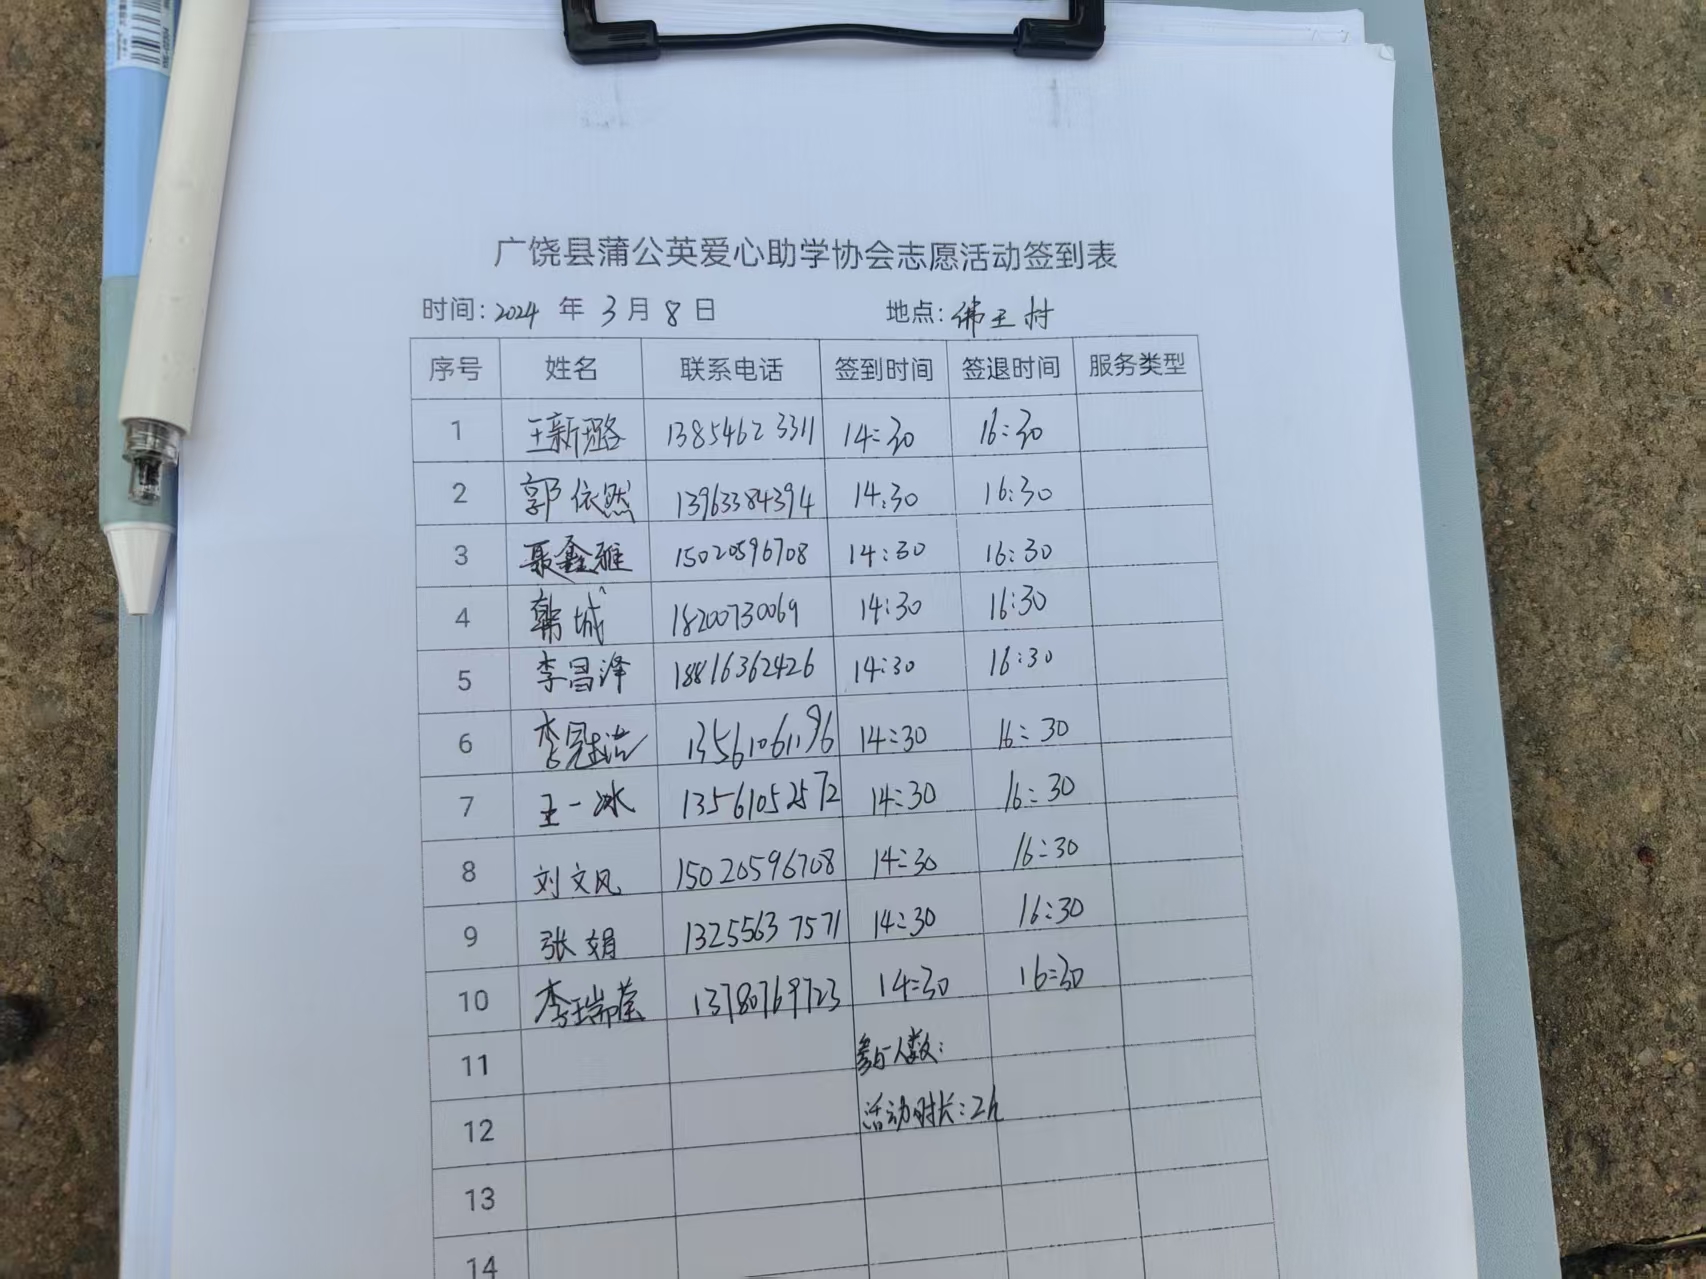 广饶县蒲公英爱心助学协会志愿活动签到表
时间: 2024 年 3 月 8 日 地点: 佛王村
序号 姓名 联系电话 签到时间 签退时间 服务类型
1 王新璐 13854623311 14:30 16:30
2 郭依然 13963384394 14:30 16:30
3 聂鑫雅 15020596708 14:30 16:30
4 韩城 18200730069 14:30 16:30
5 李昌泽 18816362426 14:30 16:30
6 李冠浩 13561061196 14:30 16:30
7 王一冰 13561052572 14:30 16:30
8 刘文风 15020596708 14:30 16:30
9 张娟 13255637571 14:30 16:30
10 李瑞莹 13780769723 14:30 16:30
11 参与人数:
12 活动时长: 2h
13
14